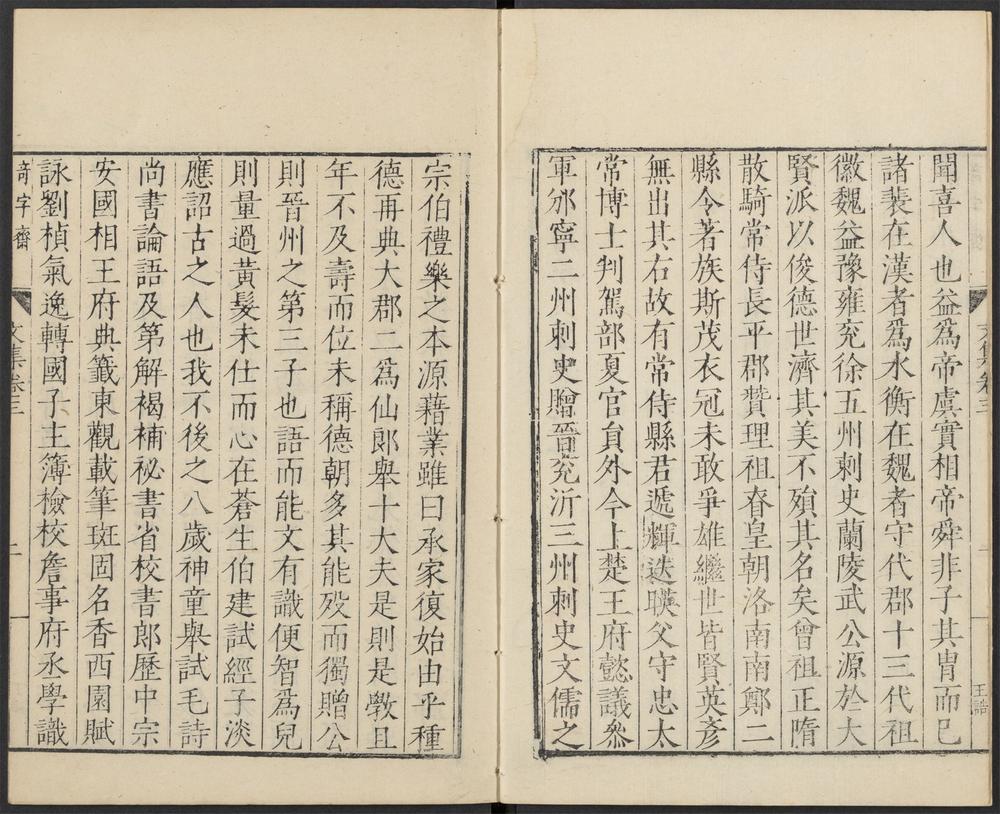 聞喜人也益爲帝虞實相帝舜非子其胄而已
諸裴在漢者爲水衡在魏者守代郡十三代祖
徽魏益豫雍兖徐五州刺史蘭陵武公源於大
賢派以俊德世濟其美不殞其名矣曾祖正隋
散騎常侍長平郡贊理祖眘皇朝洛南南鄭二
縣令著族斯茂衣冠未敢爭雄繼世皆賢英彥
無出其右故有常侍縣君遞輝迭暎父守忠太
常博士判駕部夏官貟外今上楚王府諮議叅
軍邠寧二州刺史贈晉兖沂三州刺史文儒之
宗伯禮樂之本源藉業雖曰承家復始由乎種
德再典大郡二爲仙郞舉十大夫是則是斆且
年不及壽而位未稱德朝多其能歿而獨贈公
則晉州之第三子也語而能文有識便智爲兒
則量過黃髮未仕而心在蒼生伯建試經子淡
應詔古之人也我不後之八歲神童舉試毛詩
尚書論語及第解褐補祕書省校書郞歷中宗
安國相王府典籤東觀載筆斑固名香西園賦
詠劉楨氣逸轉國子主簿檢校詹事府丞學識
奇字齋
文集卷三
二